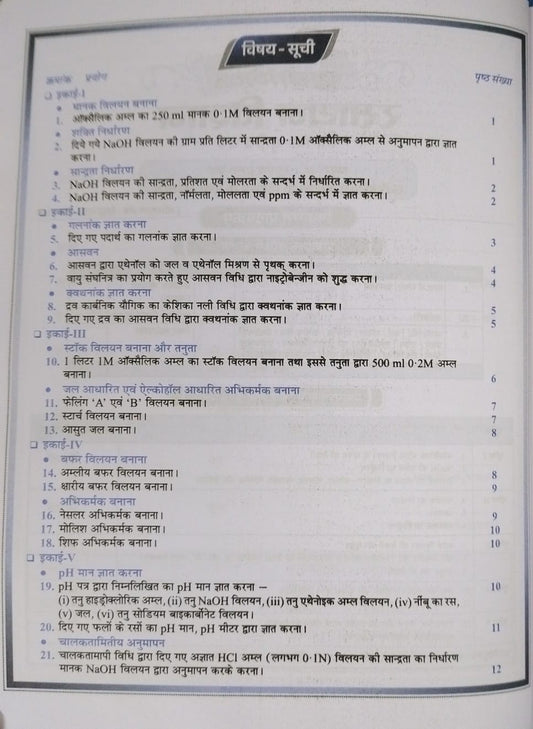 विषय - सूची
क्रमांक प्रयोग पृष्ठ संख्या
❑ इकाई-I
• मानक विलयन बनाना
1. ऑक्सैलिक अम्ल का 250 ml मानक 0·1M विलयन बनाना। 1
• शक्ति निर्धारण
2. दिये गये NaOH विलयन की ग्राम प्रति लिटर में सान्द्रता 0·1M ऑक्सैलिक अम्ल से अनुमापन द्वारा ज्ञात
करना। 1
• सान्द्रता निर्धारण
3. NaOH विलयन की सान्द्रता, प्रतिशत एवं मोलरता के सन्दर्भ में निर्धारित करना। 2
4. NaOH विलयन की सान्द्रता, नॉर्मलता, मोललता एवं ppm के सन्दर्भ में ज्ञात करना। 2
❑ इकाई-II
• गलनांक ज्ञात करना
5. दिए गए पदार्थ का गलनांक ज्ञात करना। 3
• आसवन
6. आसवन द्वारा एथेनॉल को जल व एथेनॉल मिश्रण से पृथक् करना। 4
7. वायु संघनित्र का प्रयोग करते हुए आसवन विधि द्वारा नाइट्रोबेन्जीन को शुद्ध करना। 4
• क्वथनांक ज्ञात करना
8. द्रव कार्बनिक यौगिक का केशिका नली विधि द्वारा क्वथनांक ज्ञात करना। 5
9. दिए गए द्रव का आसवन विधि द्वारा क्वथनांक ज्ञात करना। 5
❑ इकाई-III
• स्टॉक विलयन बनाना और तनुता
10. 1 लिटर 1M ऑक्सैलिक अम्ल का स्टॉक विलयन बनाना तथा इससे तनुता द्वारा 500 ml 0·2M अम्ल
बनाना। 6
• जल आधारित एवं ऐल्कोहॉल आधारित अभिकर्मक बनाना
11. फेलिंग 'A' एवं 'B' विलयन बनाना। 7
12. स्टार्च विलयन बनाना। 7
13. आसुत जल बनाना। 8
❑ इकाई-IV
• बफर विलयन बनाना
14. अम्लीय बफर विलयन बनाना। 8
15. क्षारीय बफर विलयन बनाना। 9
• अभिकर्मक बनाना
16. नेसलर अभिकर्मक बनाना। 9
17. मोलिश अभिकर्मक बनाना। 10
18. शिफ अभिकर्मक बनाना। 10
❑ इकाई-V
• pH मान ज्ञात करना
19. pH पत्र द्वारा निम्नलिखित का pH मान ज्ञात करना – 10
(i) तनु हाइड्रोक्लोरिक अम्ल, (ii) तनु NaOH विलयन, (iii) तनु एथेनोइक अम्ल विलयन, (iv) नींबू का रस,
(v) जल, (vi) तनु सोडियम बाइकार्बोनेट विलयन।
20. दिए गए फलों के रसों का pH मान, pH मीटर द्वारा ज्ञात करना। 11
• चालकतामितीय अनुमापन
21. चालकतामापी विधि द्वारा दिए गए अज्ञात HCl अम्ल (लगभग 0·1N) विलयन की सान्द्रता का निर्धारण
मानक NaOH विलयन द्वारा अनुमापन करके करना। 12